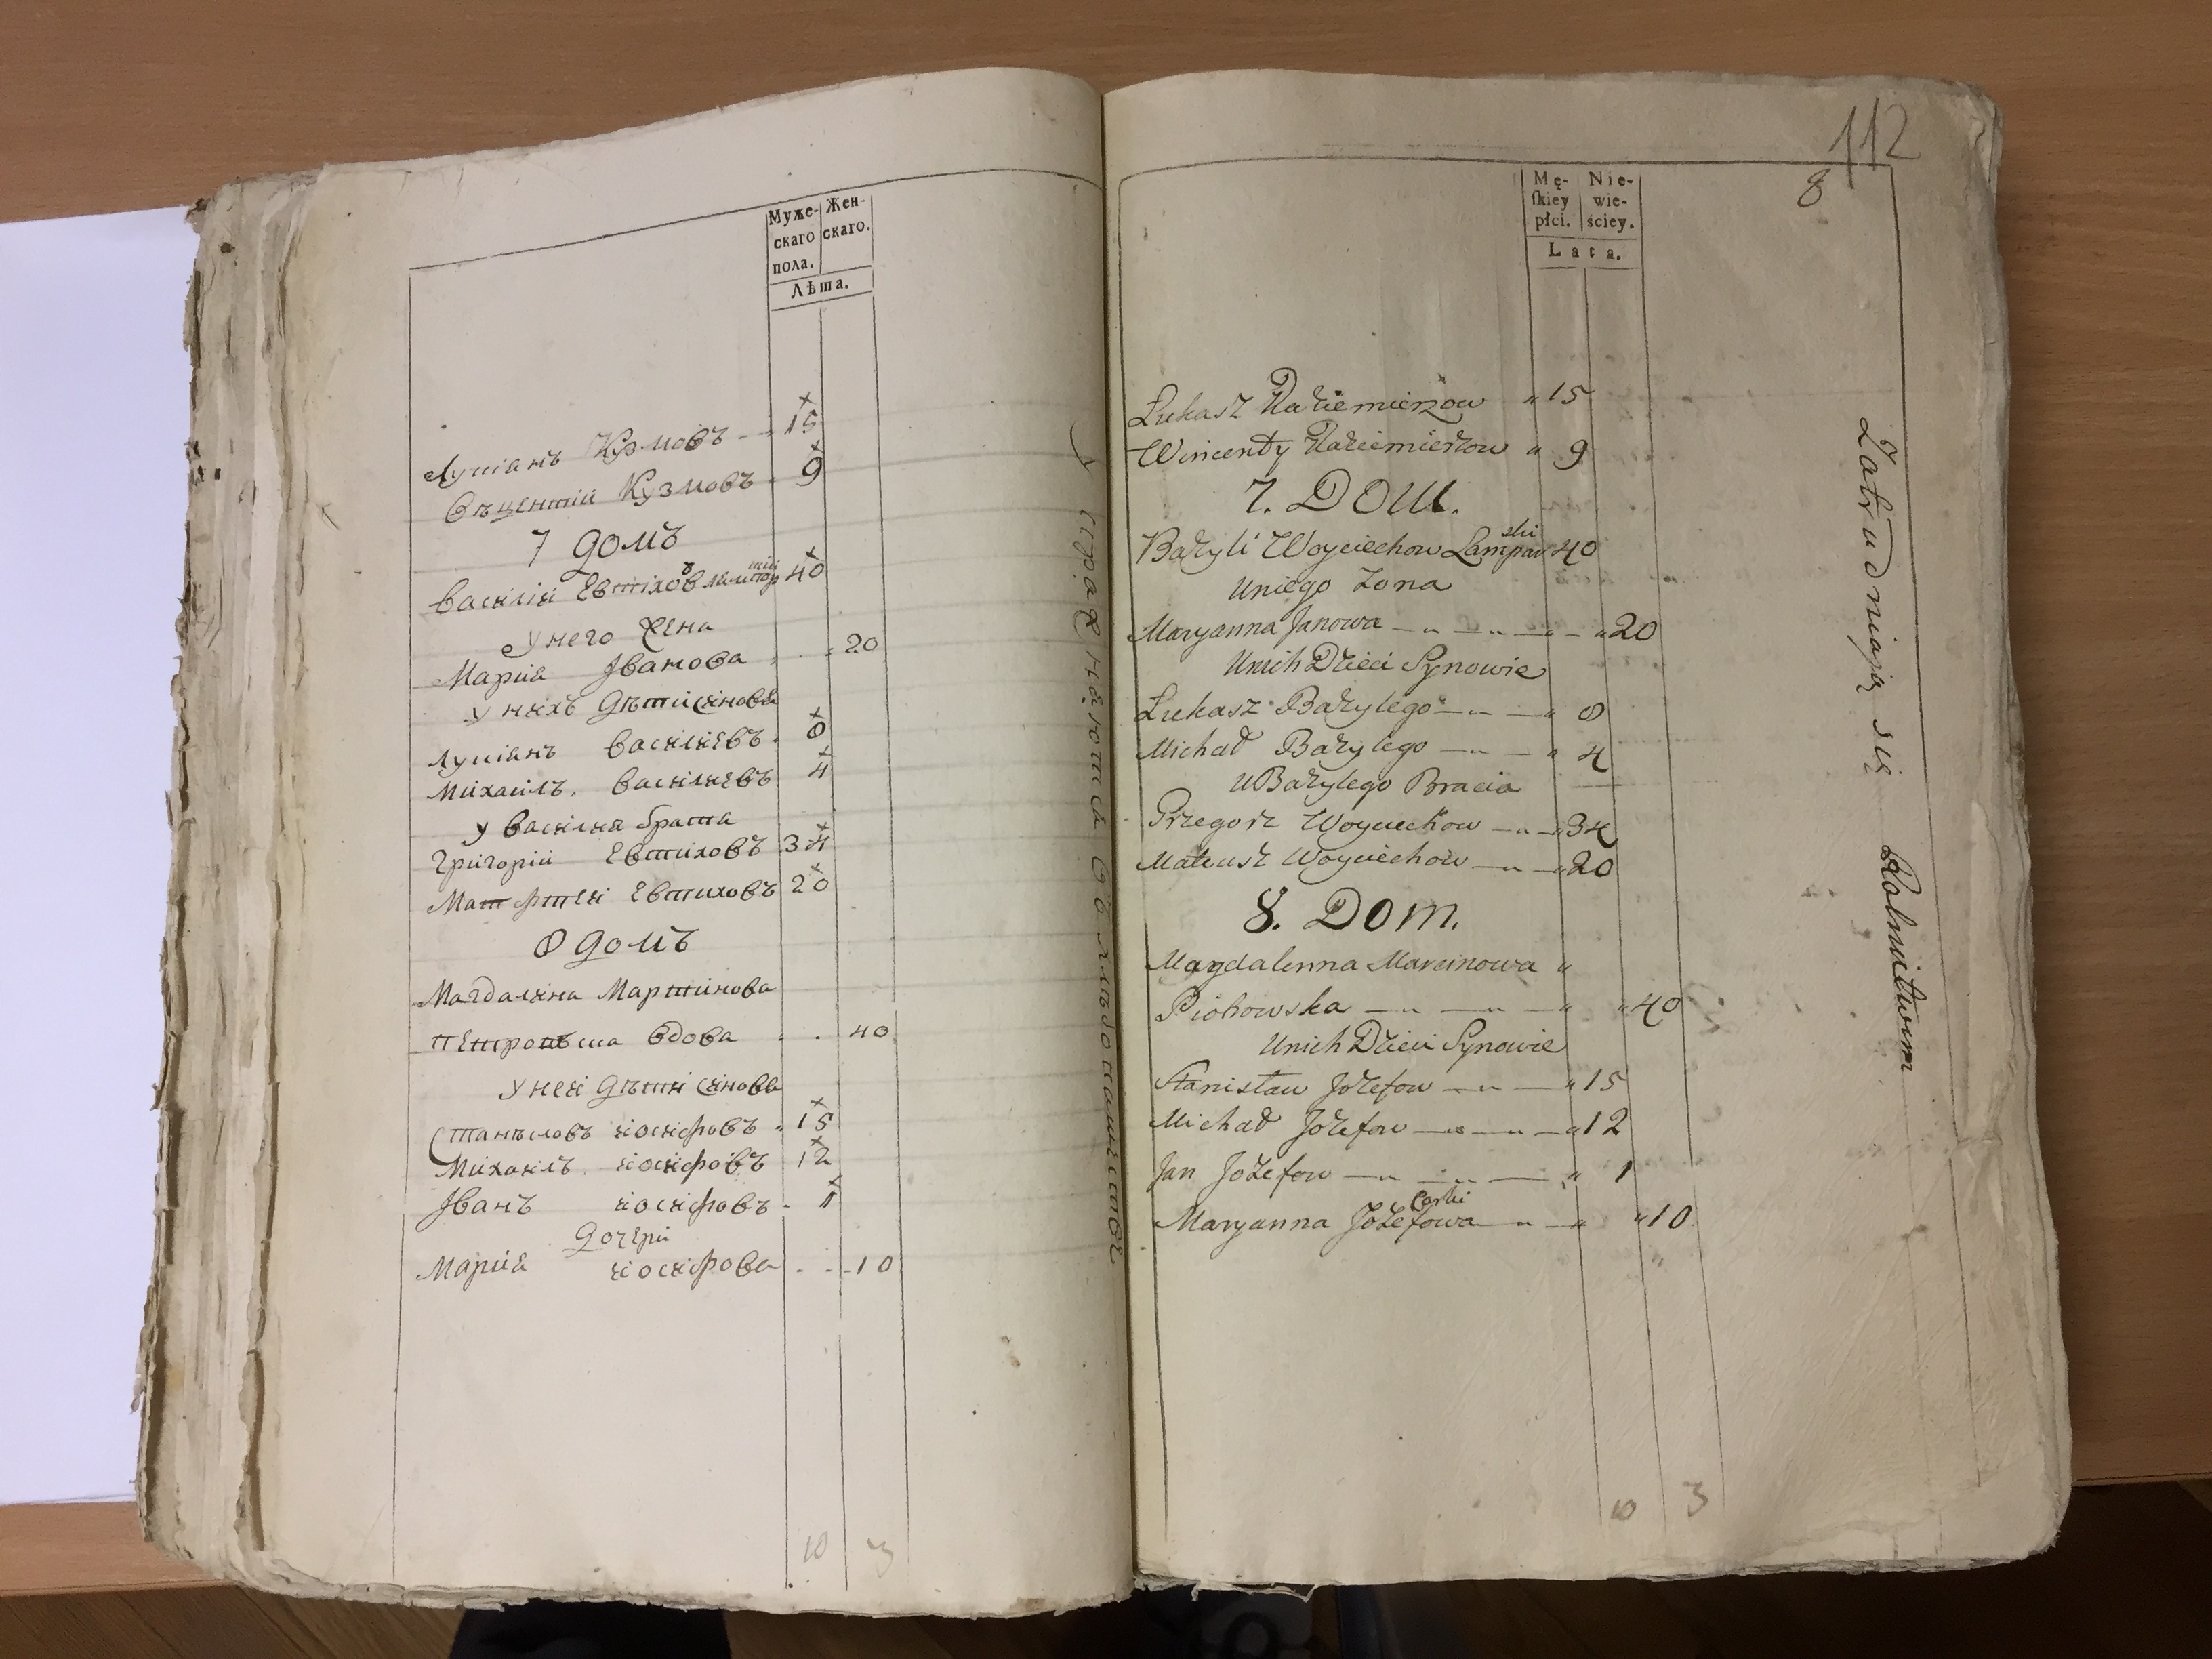 Муже- Жен-
скаго скаго.
пола.
Лѣта.
Лукіанъ Кузмовъ 15
Вѣцентій Кузмовъ 9
7 домъ
Василій Евтіховъ 40
У него жена
Марія Іванова 20
у нихъ дѣти синове
Лукіанъ Василіевъ 8
Михаилъ Василіевъ 4
у Василия брата
Григорій Евтиховъ 34
Матфтей Евтиховъ 20
8 домъ
Магдалина Мартинова
вдова 40
у неи дѣти синове
Станѣславъ иосифовъ 15
Михаилъ иосифовъ 12
Іванъ иосифовъ 1
Дочери
Марія иосифова 10
10 3
Упражняются въ хлѣбопашестве
112
8
Mę- Nie-
skiey wie-
płci. ściey.
Lata.
Łukasz Kaziemierzow 15
Wincenty Kaziemierzow 9
7. Dom.
Bazyli Woyciechow Lamparski 40
Uniego Zona
Maryanna Janowa 20
Unich Dzieci Synowie
Łukasz Bazylego 8
Michał Bazylego 4
U Bazylego Bracia
Grzegorz Woyciechow 34
Mateusz Woyciechow 20
8. Dom.
Magdalenna Marcinowa
Piotrowska 40
Unich Dzieci Synowie
Stanisław Jozefow 15
Michał Jozefow 12
Jan Jozefow 1
Corki
Maryanna Jozefowa 10
10 3
Zatrudniaią się Rolnictwem